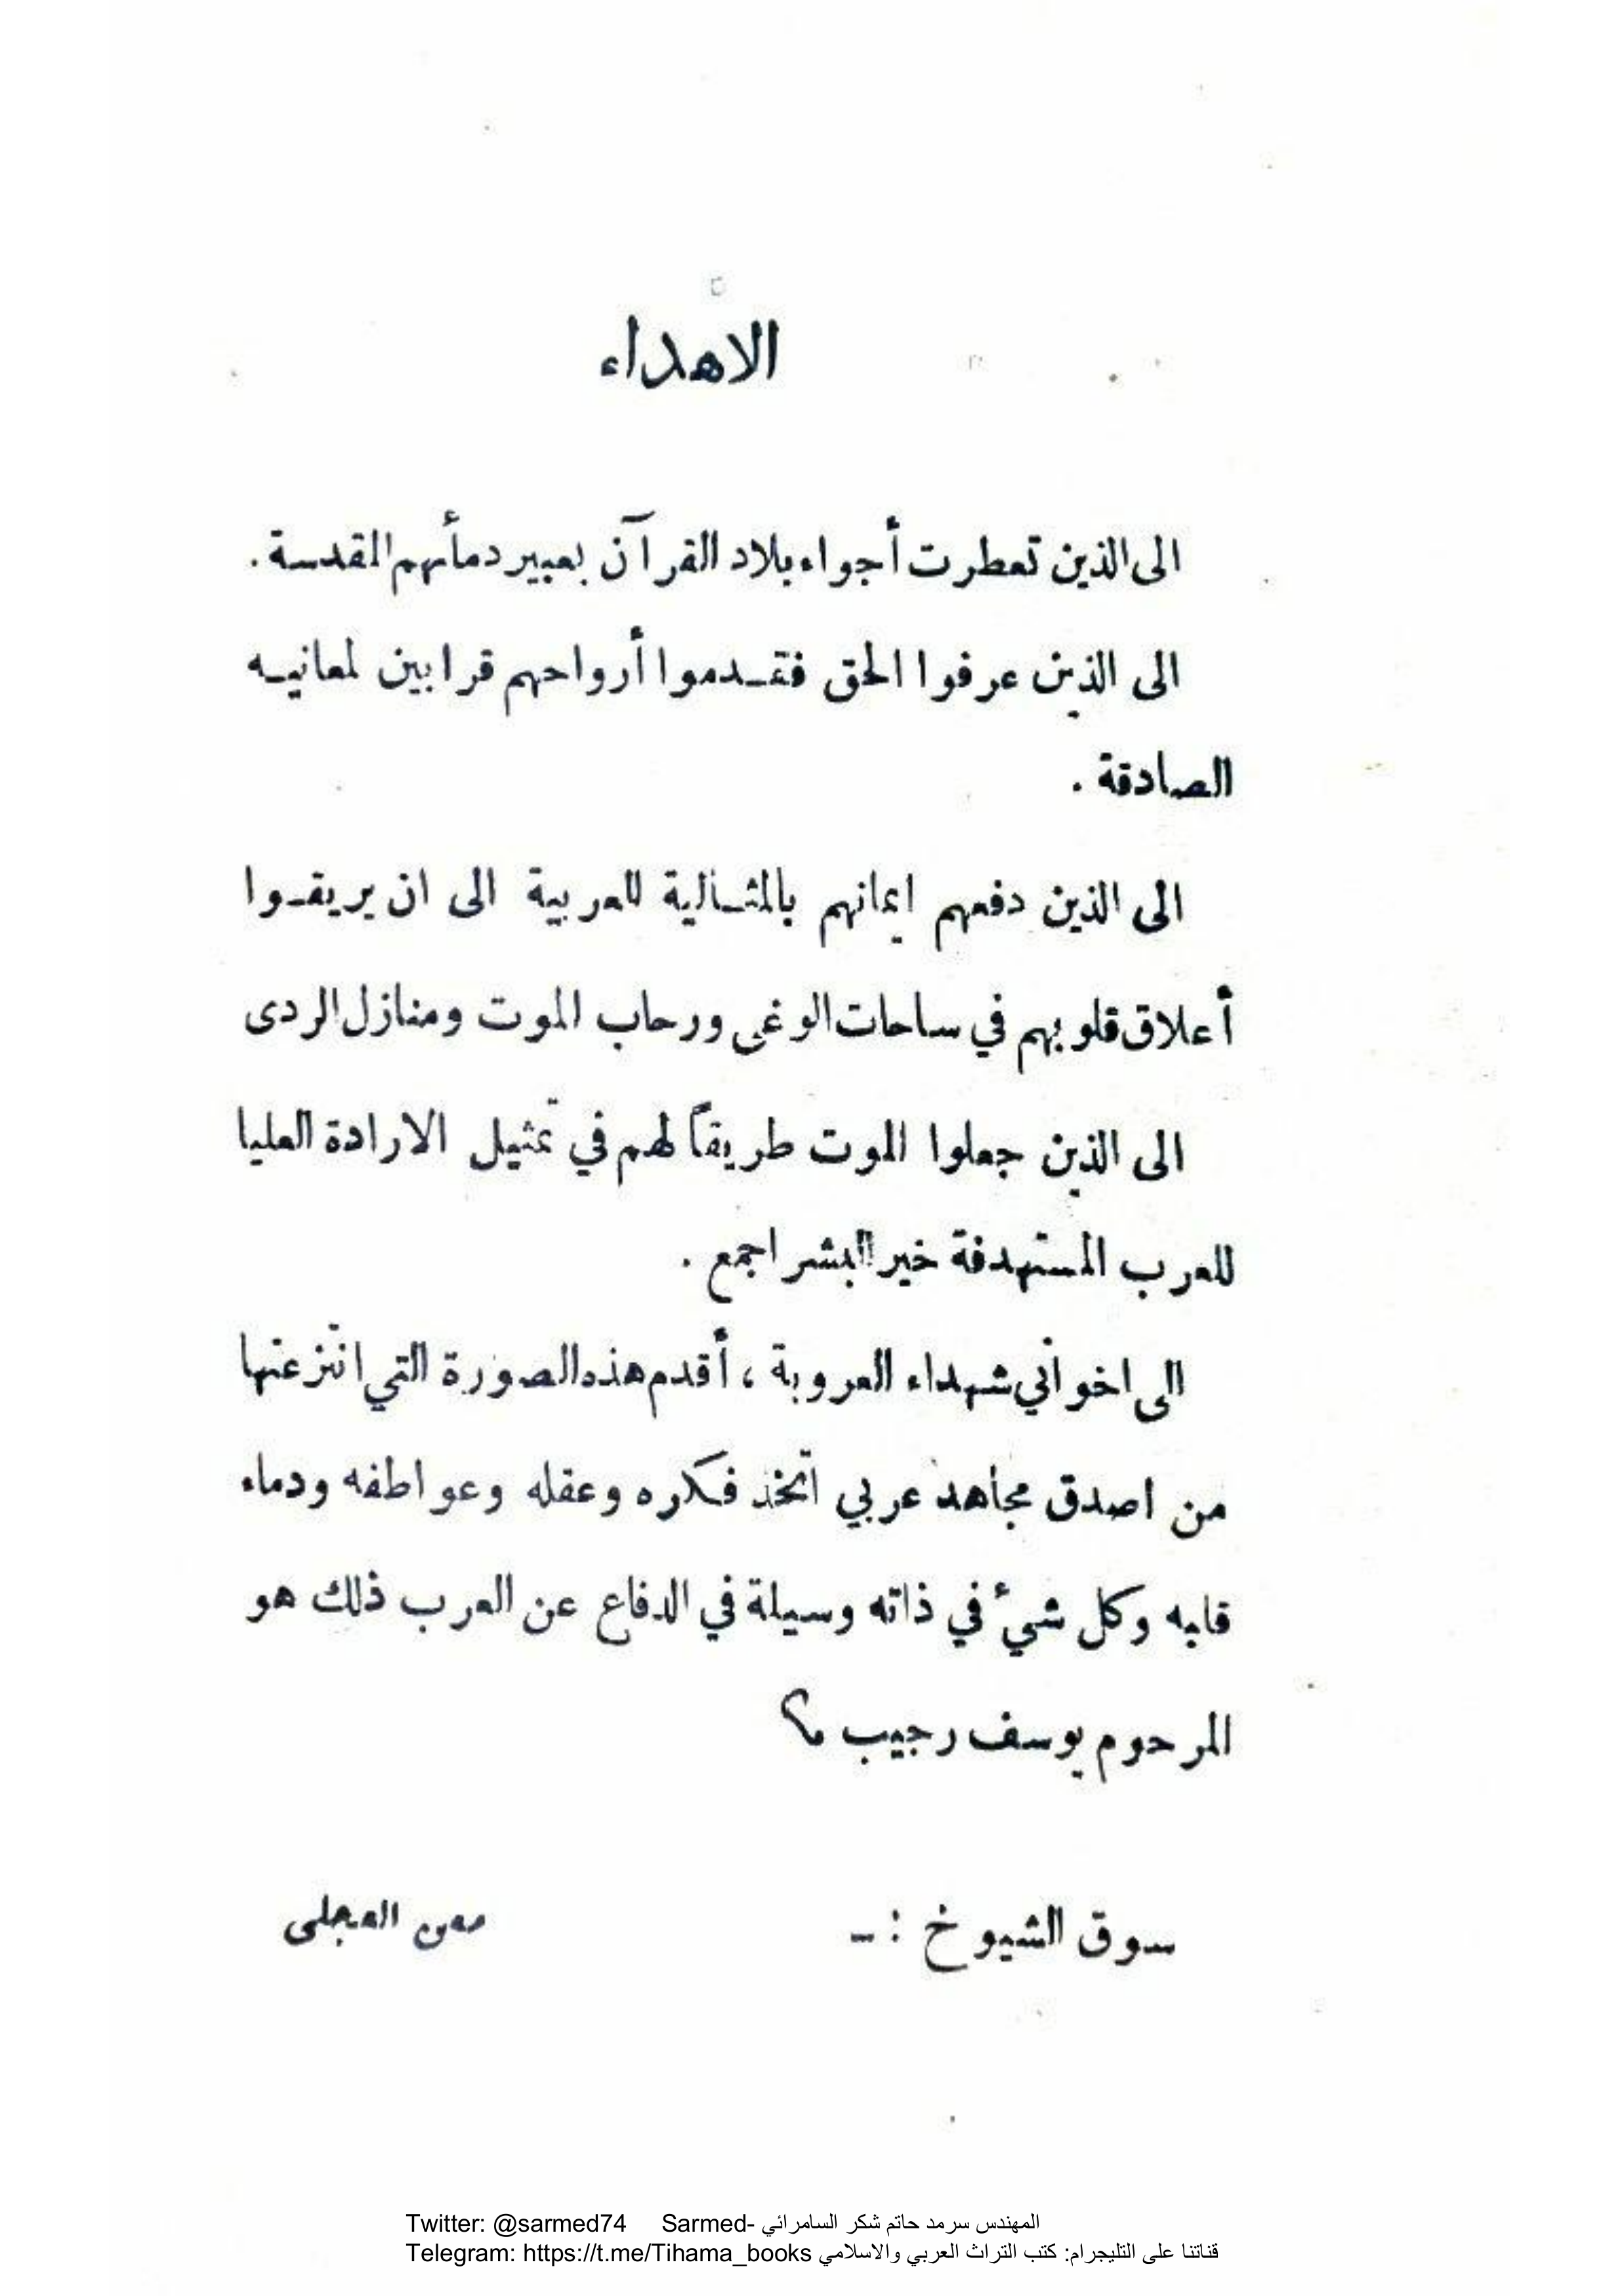 الاهداء
الى الذين تعطرت أجواء بلاد القرآن بعبير دمأئهم المقدسة .
الى الذين عرفوا الحق فقـدموا أرواحهم قرابين لمعانيـه
الصادقة .
الى الذين دفعهم ايمانهم بالمثـالية العربية الى ان يريقـوا
أعلاق قلوبهم في ساحات الوغى ورحاب الموت ومنازل الردى
الى الذين جعلوا الموت طريقاً لهم في تمثيل الارادة العليا
للعرب المستهدفة خير البشر اجمع .
الى اخواني شهداء العروبة ، أقدم هذه الصورة التي انتزعتها
من اصدق مجاهد عربي اتخذ فكره وعقله وعواطفه ودماء
قلبه وكل شيء في ذاته وسيلة في الدفاع عن العرب ذلك هو
المرحوم يوسف رجيب
سوق الشيوخ : ـ معن العجلى
Twitter: @sarmed74 Sarmed- المهندس سرمد حاتم شكر السامرائي
Telegram: https://t.me/Tihama_books قناتنا على التليجرام: كتب التراث العربي والاسلامي